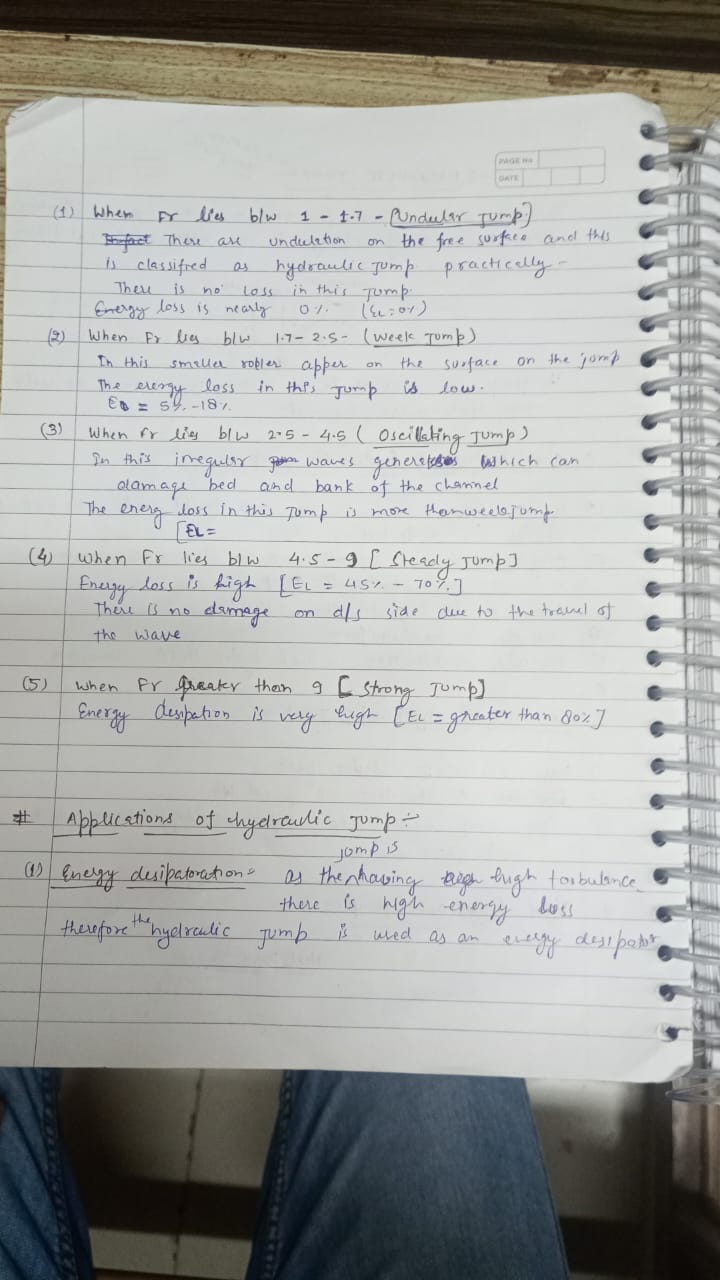 PAGE No
DATE
(1) When Fr lies b/w 1 - 1.7 - [Undular Jump]
There are undulation on the free surface and this
is classified as hydraulic Jump practically -
There is no loss in this Jump.
Energy loss is nearly 0%. (EL = 0%)
(2) When Fr lies b/w 1.7 - 2.5 - (Week Jump)
In this smaller robler apper on the surface on the jomp
The energy loss in this Jump is low.
= 5% - 18%
(3) When Fr lies b/w 2.5 - 4.5 ( Oscillating Jump)
In this irregular waves generates which can
damage bed and bank of the channel
The energ loss in this Jump is more than week jump
[EL =
(4) When Fr lies b/w 4.5 - 9 [ Steady Jump]
Energy loss is high [EL = 45% - 70%.]
There is no damage on d/s side due to the travel of
the wave
(5) when Fr greater than 9 [ Strong Jump]
Energy desipation is very high [EL = greater than 80%]
# Applications of hydraulic Jump :-
jomp is
(1) Energy desipatoration :- as the having high torbulance
there is high energy loss
therefore the hydraulic Jump is used as an energy desipator